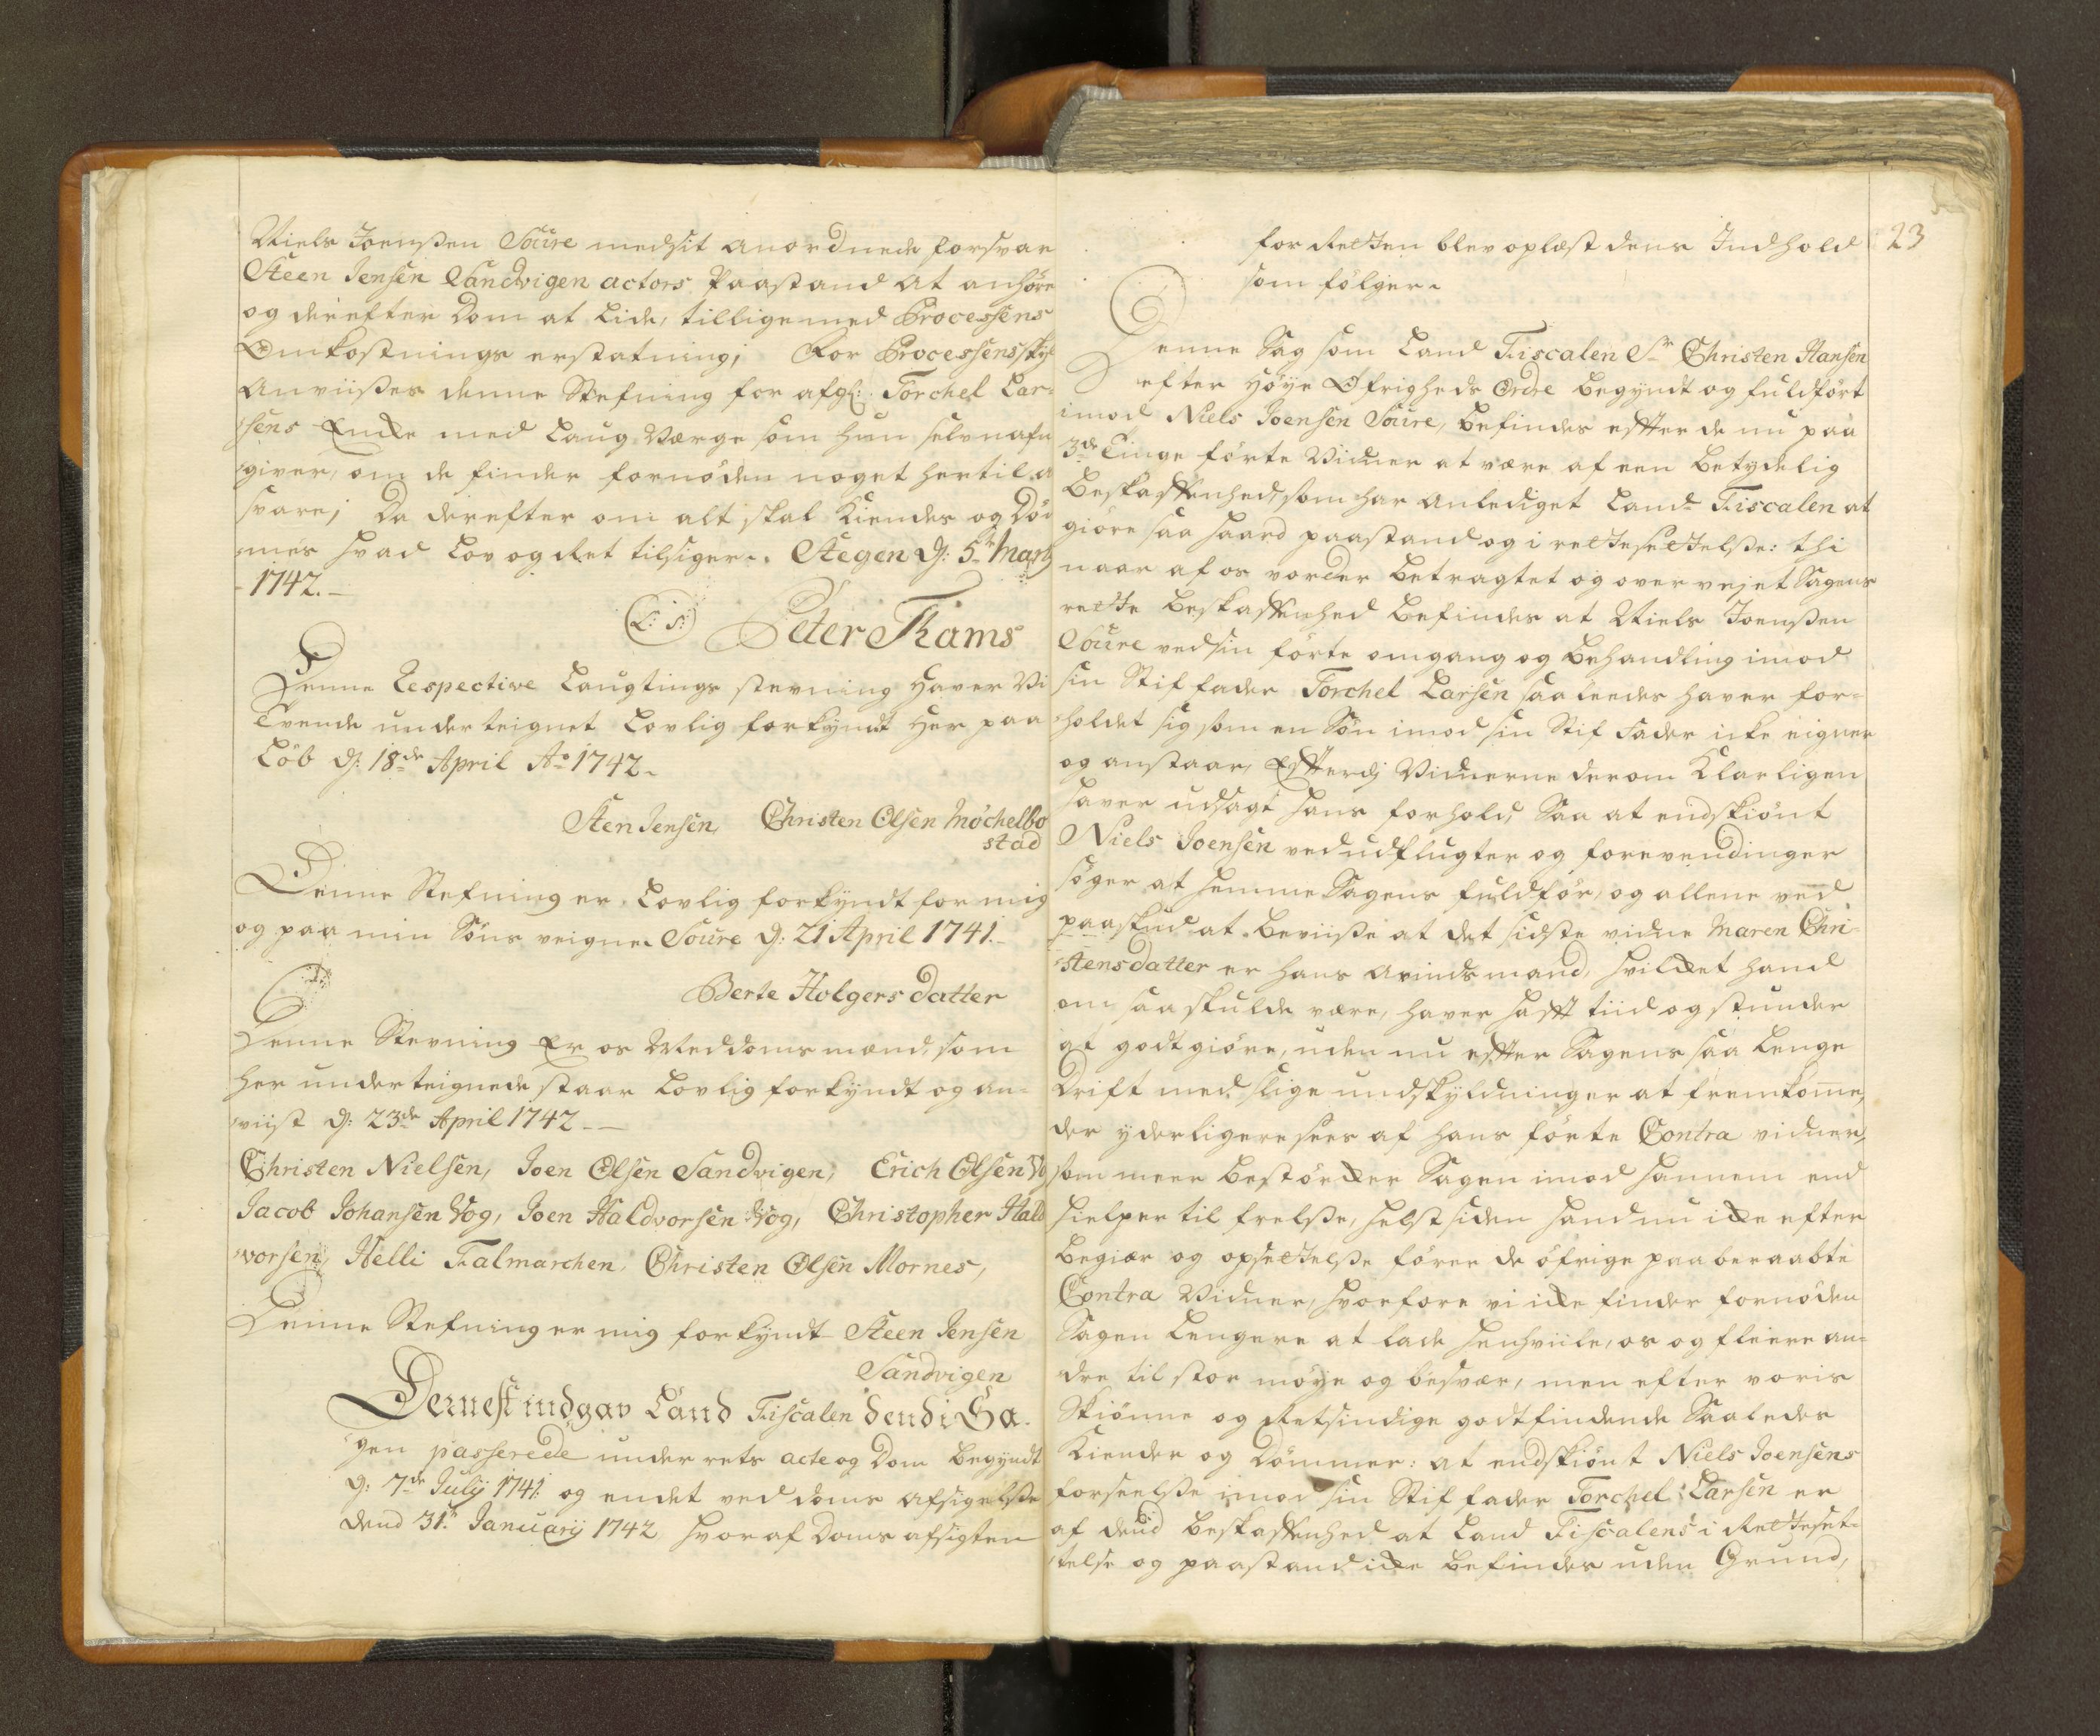 Niels Joenßen Soure medsit anordnede forsvar
Steen Jensen Sandvigen actors Paastand at anhøre
og derefter Dom at Lide, tilligemed Processens
Omkostnings erstatning; For Processens skyl
Anviißes denne Stefning for afgl: Torchel Lar-
sens Encke med Laug Værge som hun selv nafn
giver, om de finder fornøden noget hertil a
svare; Da derefter om alt skal Kiendes og Døm
mes hvad Lov og Ret tilsiger. Stegen d: 5te Marty
1742.
(L: S:) Peter Thams
Denne Respective Laugtings stevning haver Vi
Tvende underteignet Lovlig forkyndt her paa
Løb d: 18de April Ao 1742.
Sten Jensen, Christen Olsen Møchelbo
stad
Denne Stefning er Lovlig forkyndt for mig
og paa min Søns veigne. Soure d: 21 April 1741.
Berte Holgers datter
Denne Stevning Er os Meddoms mænd, som
her underteignede staar Lovlig forkyndt og an-
viist d: 23de April 1742
Christen Nielsen, Joen Olsen Sandvigen, Erich Olsen
Jacob Johansen Vog, Joen Haldvorsen Vog, Christopher Hald
vorsen, Helli Falmarchen, Christen Olsen Mornes,
Denne Stefning er mig forkyndt Steen Jensen
Sandvigen
Dernest indgav Land Fiscalen dend i Sa-
gen passerede under rets acte og Dom begyndt
d: 7de July 1741 og endet ved doms afsigelße
dend 31te January 1742 hvoraf Doms afsigten
23
for Retten blev oplæst dens Indhold
som følger.
Denne Sag som Land Fiscalen Sr Christen Hansen
efter høye Øfrigheds Ordre begyndt og fuldført
imod Niels Joensen Soure, befindes effter de nu paa
3de Tinge førte Vidner at være af een betydelig
beskaffenhed, som har anlediget Land Fiscalen at
giøre saa haard paastand og i rettesettelße: thi
naar af os vorder betragtet og overvejet Sagens
rette beskaffenhed befindes at Niels Joenßen
Soure ved sin førte omgang og behandling imod
sin Stif fader Torchel Larsen saaleedes haver for-
holdet sig som en Søn imod sin Stif Fader icke eigner
og anstaar, Effterdj Vidnerne derom Klarligen
haver udsagt hans forhold, Saa at endskiønt
Niels Joensen ved udflugter og forevendinger
søger at hemme Sagens fuldfør, og allene ved
paaskud at beviiße at det sidste vidne Maren Chri-
stensdatter er hans avindsmand, hvilcket hand
om saa skulde være, haver hafft tiid og stunder
at godtgiøre, uden nu effter Sagens saa lenge
Drift med slige undskyldninger at fremkome,
der yderligere sees af hans førte Contra vidner,
som meer bestørcker Sagen imod hannem end
hielper til frelße, helst siden hand nu icke efter
begiær og opsettelße fører de øfrige paaberaabte
Contra Vidner, hvorfore vi icke finder fornøden
Sagen lengere at lade henhviile, os og fleere an-
dre til stor møye og besvær, men efter voris
Skiønne og Retsindige godtfindende Saaledes
Kiender og Dømmer: at endskiønt Niels Joensens
forseelße imod sin Stif fader Torchel Larsen er
af dend beskaffenhed at Land Fiscalens i Retteset-
telse og paastand icke befindes uden Grund,